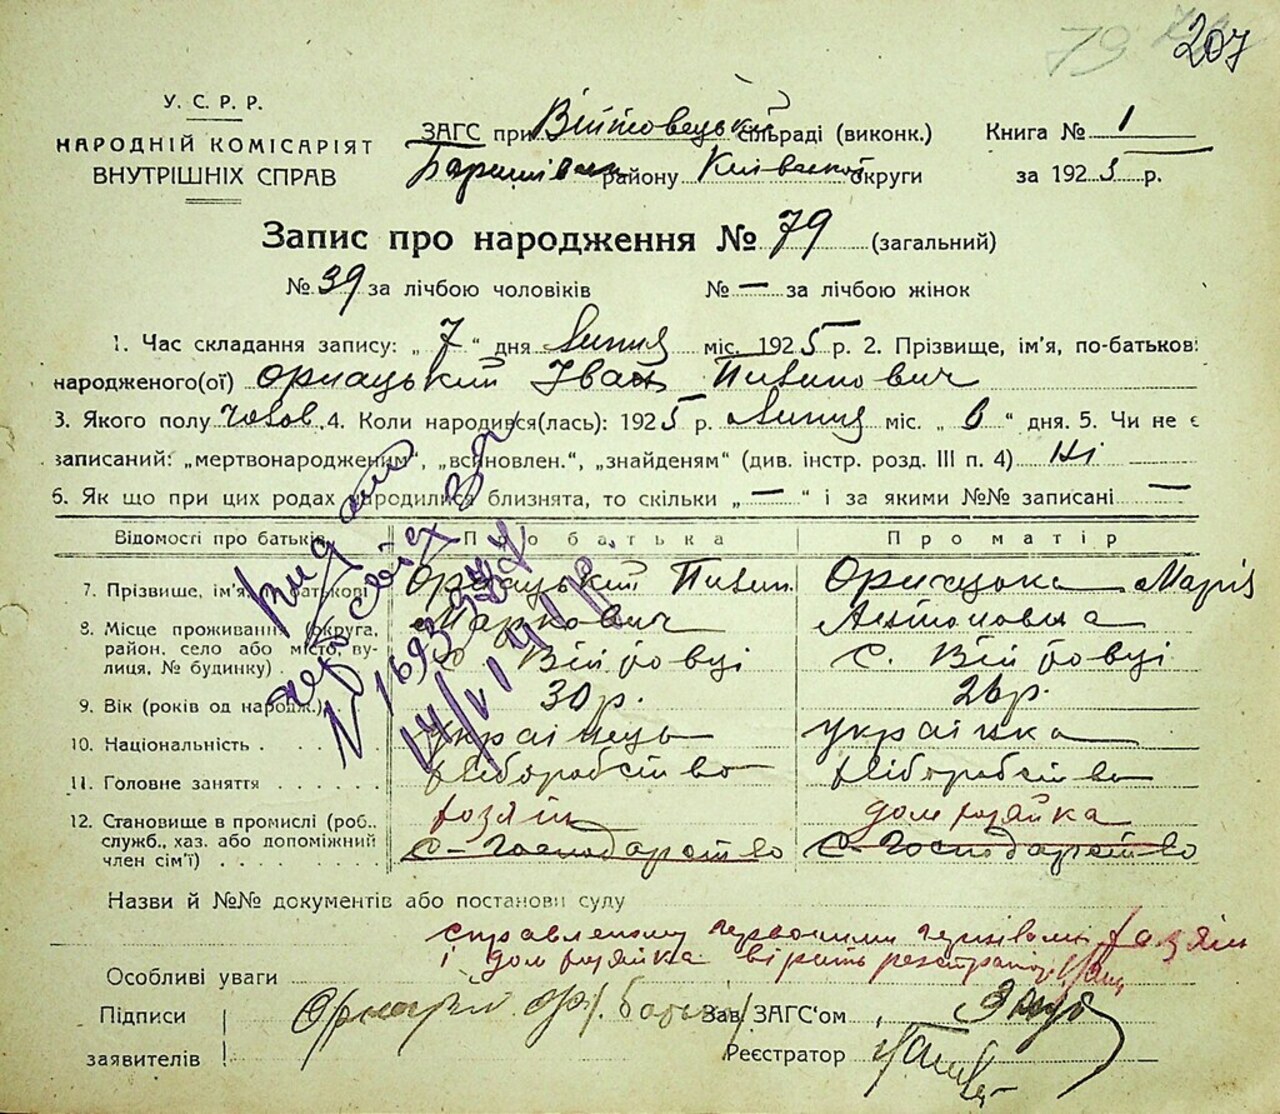 79 207
У. С. Р. Р.
НАРОДНІЙ КОМІСАРІЯТ
ВНУТРІШНІХ СПРАВ
ЗАГС при Війтовецькій сільраді (виконк.)
Книга № 1
району Київської округи
за 1925 р.
Запис про народження № 79 (загальний)
№ 39 за лічбою чоловіків № — за лічбою жінок
1. Час складання запису: „ 7 “ дня Липня міс. 1925 р. 2. Прізвище, ім’я, по-батькові
народженого(ої) Іван Пилипович
3. Якого полу чолов. 4. Коли народився(лась): 1925 р. Липня міс. „ 6 “ дня. 5. Чи не є
записаний: „мертвонародженим“, „всиновлен.“, „знайденям“ (див. інстр. розд. III п. 4) Ні
6. Як що при цих родах народилися близнята, то скільки „ — “ і за якими №№ записані —
Відомості про батьків Про батька Про матір
7. Прізвище, ім’я, по батькові Пилип Маркович Марія Антоновна
8. Місце проживання (округа, район, село або місто, вулиця, № будинку) с. Війтовці с. Війтовці
9. Вік (років од народж.) 30 р. 26 р.
10. Національність українець українка
11. Головне заняття хліборобство хліборобство
12. Становище в промислі (роб., служб., хаз. або допоміжний член сім’ї) хозяїн дом хозяйка
с-господарство с-господарство
видано
№ 1693244
14/VI 41 р.
Назви й №№ документів або постанови суду
справленому червоними чернилами хазяїн
Особливі уваги і дом хозяйка вірить
Підписи
заявителів
Зав. ЗАГС‘ом
Реєстратор